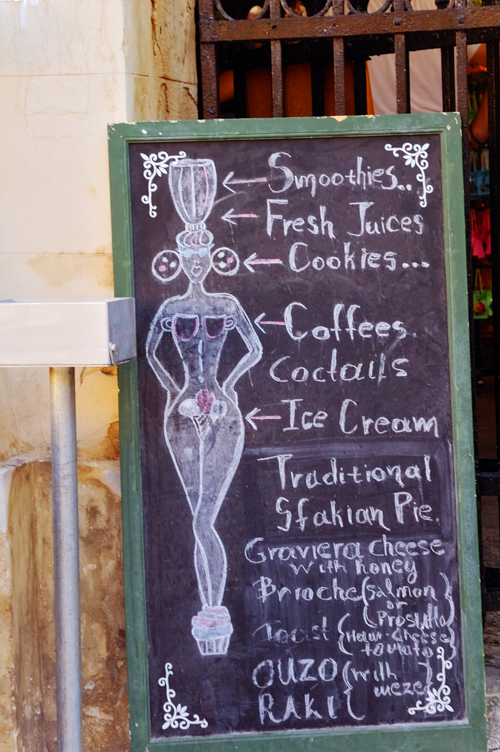 Smoothies...
Fresh Juices
Cookies...
Coffees.
Coctails
Ice Cream
Traditional
Sfakian Pie.
Graviera cheese
with honey
Brioche (salmon
or
Prosutto)
Toast (Ham-Cheese
tomato)
OUZO (with
RAKI meze)